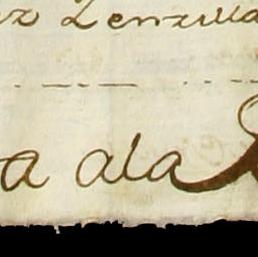 az Zenzilla
a ala